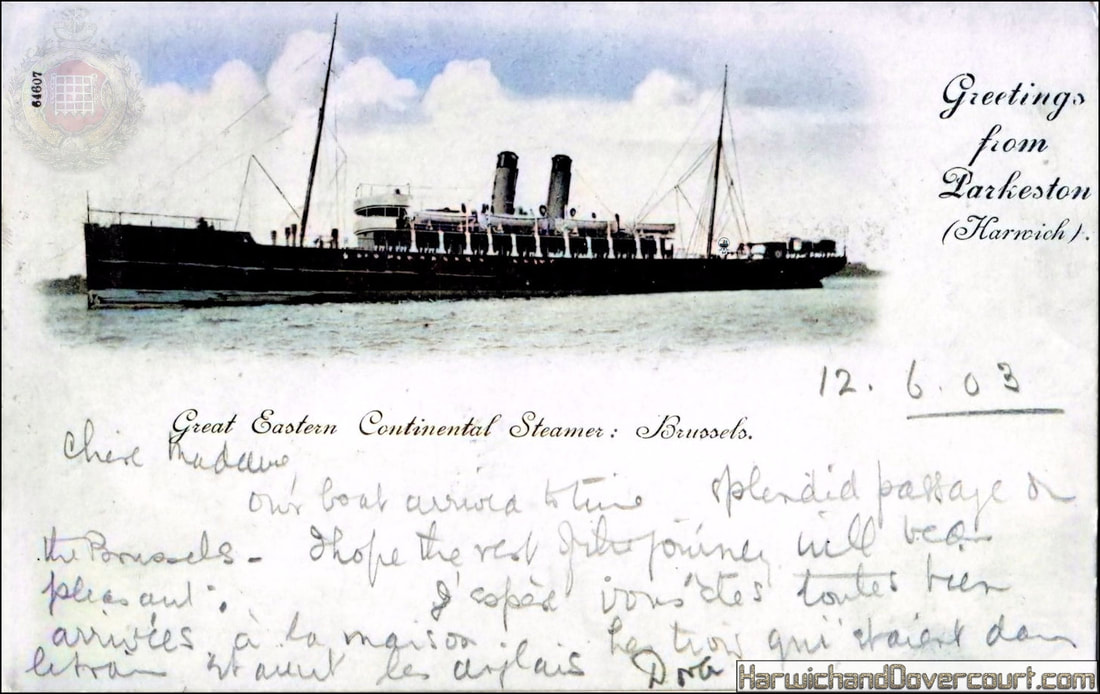 64607
Greetings
from
Parkeston
(Harwich).
12. 6. 03
Great Eastern Continental Steamer: Brussels.
Chère Madame
Our boat arrived to time splendid passage on
the Brussels – I hope the rest of the journey will be as
pleasant. J'espère vous êtes toutes bien
arrivées à la maison trois qui étaient dans
le train étaient les anglais Dora
HarwichandDovercourt.com